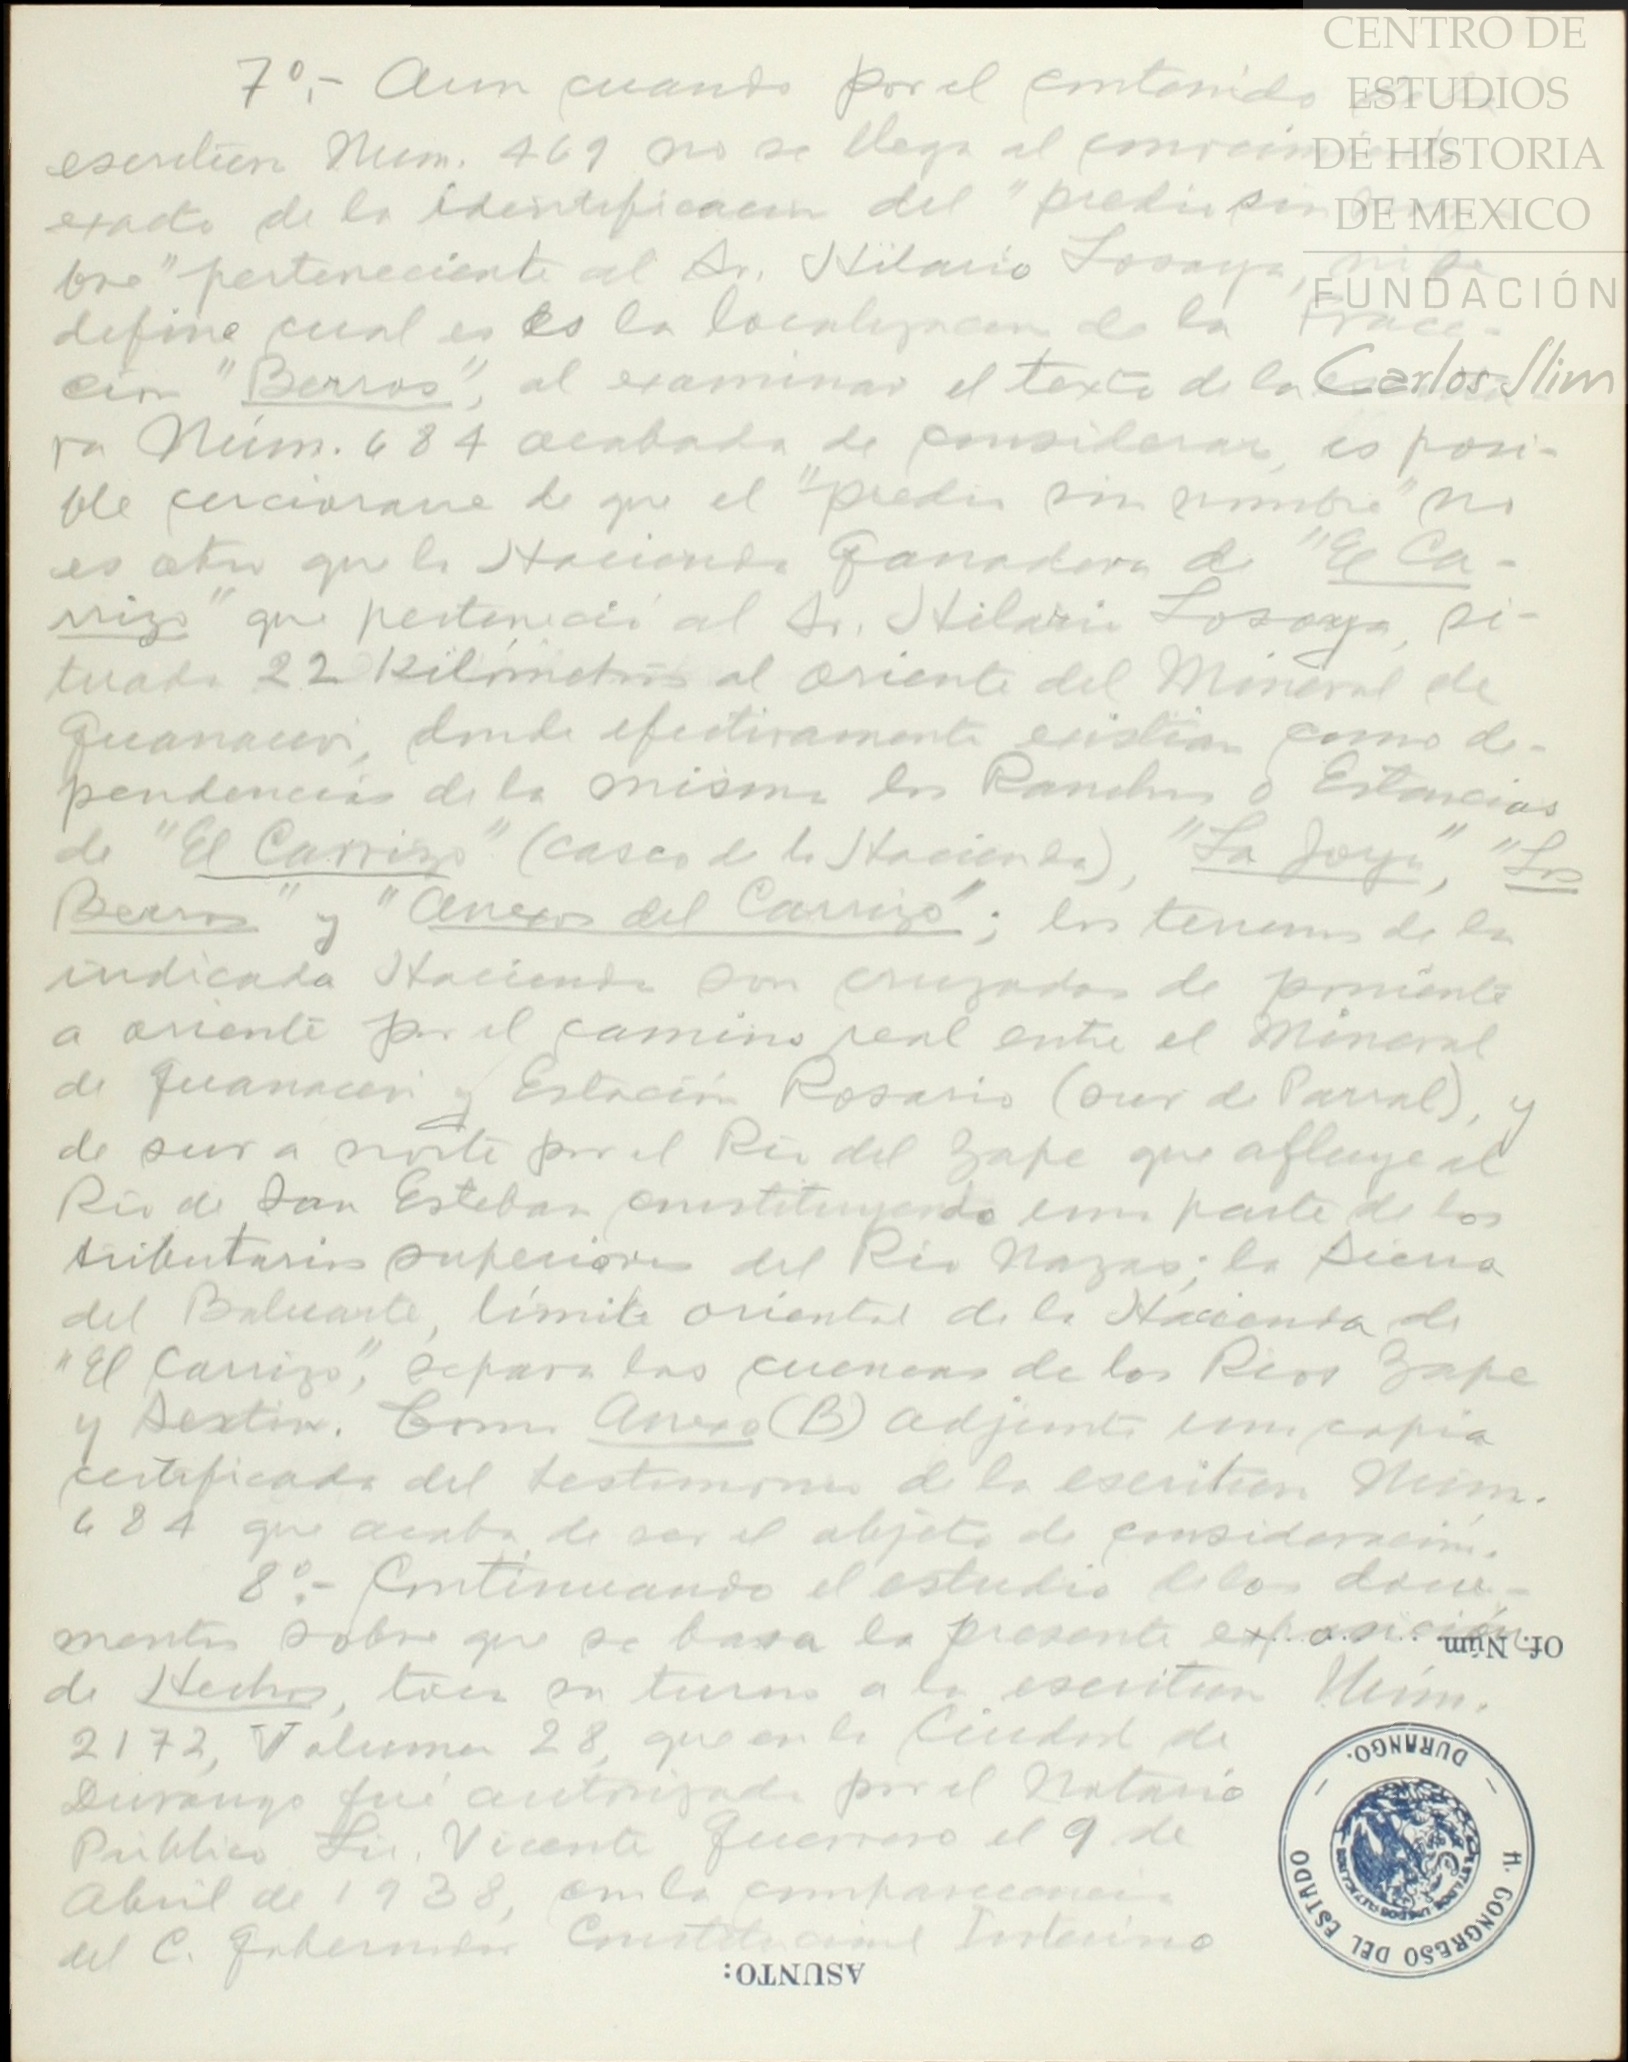 CENTRO DE
ESTUDIOS
DE HISTORIA
DE MEXICO
FUNDACIÓN
Carlos Slim
7º.- Aun cuando por el contenido
escritura Núm. 469 no se llega al conocimiento
exacto de la identificación del "predio sin
bre" perteneciente al Sr. Hilario Losoya, ni se
define cual es es la localización de la Fracc-
ción "Berros", al examinar el texto de la
ra Núm. 684 acabada de considerar, es posi-
ble cerciorarse de que el "predio sin nombre" no
es otro que la Hacienda Ganadera de "El Ca-
rrizo" que perteneció al Sr. Hilario Losoya, si-
tuada 22 Kilómetros al oriente del Mineral de
Guanaceví, donde efectivamente existían como de-
pendencias de la misma los Ranchos o Estancias
de "El Carrizo" (casco de la Hacienda), "La Joya", "Los
Berros" y "Anexos del Carrizo"; los terrenos de la
indicada Hacienda son cruzados de poniente
a oriente por el camino real entre el Mineral
de Guanaceví y Estación Rosario (sur de Parral), y
de sur a norte por el Río del Zape que afluye al
Río de San Esteban constituyendo una parte de los
tributarios superiores del Río Nazas; la Sierra
del Baluarte, límite oriental de la Hacienda de
"El Carrizo", separa las cuencas de los Ríos Zape
y Sextín. Como Anexo (B) adjunto una copia
certificada del testimonio de la escritura Núm.
684 que acaba de ser el objeto de consideración.
8º.- Continuando el estudio de los docu-
mentos sobre que se basa la presente exposición
de Hechos, toca su turno a la escritura Núm.
2172, Volumen 28, que en la Ciudad de
Durango fué autorizada por el Notario
Público Lic. Vicente Guerrero el 9 de
Abril de 1938, con la comparecencia
del C. Gobernador Constitucional Interino
Of. Núm.
H. CONGRESO DEL ESTADO
DURANGO.
ESTADOS UNIDOS MEXICANOS
ASUNTO: